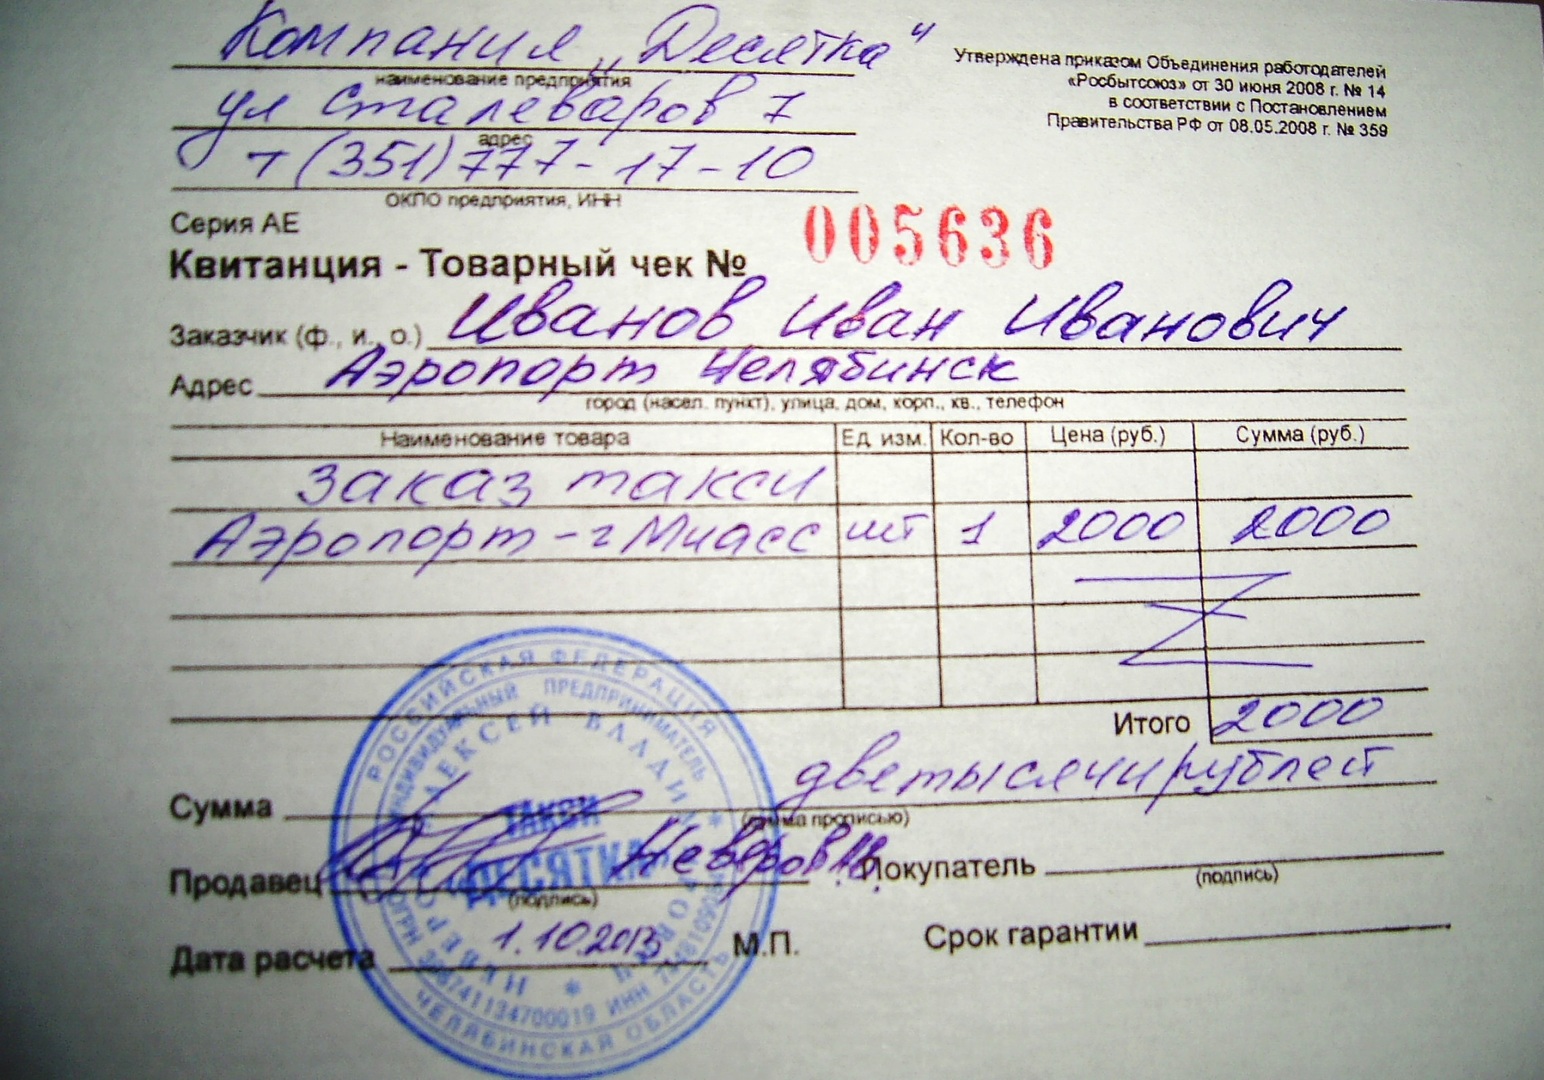 Компания „Десятка"
наименование предприятия
ул Сталеваров 7
адрес
т (351) 777-17-10
ОКПО предприятия, ИНН
Утверждена приказом Объединения работодателей
«Росбытсоюз» от 30 июня 2008 г. № 14
в соответствии с Постановлением
Правительства РФ от 08.05.2008 г. № 359
Серия АЕ
Квитанция - Товарный чек № 005636
Заказчик (ф., и., о.) Иванов Иван Иванович
Адрес Аэропорт Челябинск
город (насел. пункт), улица, дом, корп., кв., телефон
Наименование товара Ед. изм. Кол-во Цена (руб.) Сумма (руб.)
заказ такси
Аэропорт - г Миасс шт 1 2000 2000
Итого 2000
Сумма две тысячи рублей
(сумма прописью)
Продавец Неверов Покупатель
(подпись) (подпись)
Дата расчета 1.10.2013 М.П. Срок гарантии
РОССИЙСКАЯ ФЕДЕРАЦИЯ
ИНДИВИДУАЛЬНЫЙ ПРЕДПРИНИМАТЕЛЬ
НЕВЕРОВ АЛЕКСЕЙ ВЛАДИМИРОВИЧ
ТАКСИ
ДЕСЯТКА
ИНН
ЧЕЛЯБИНСКАЯ ОБЛАСТЬ